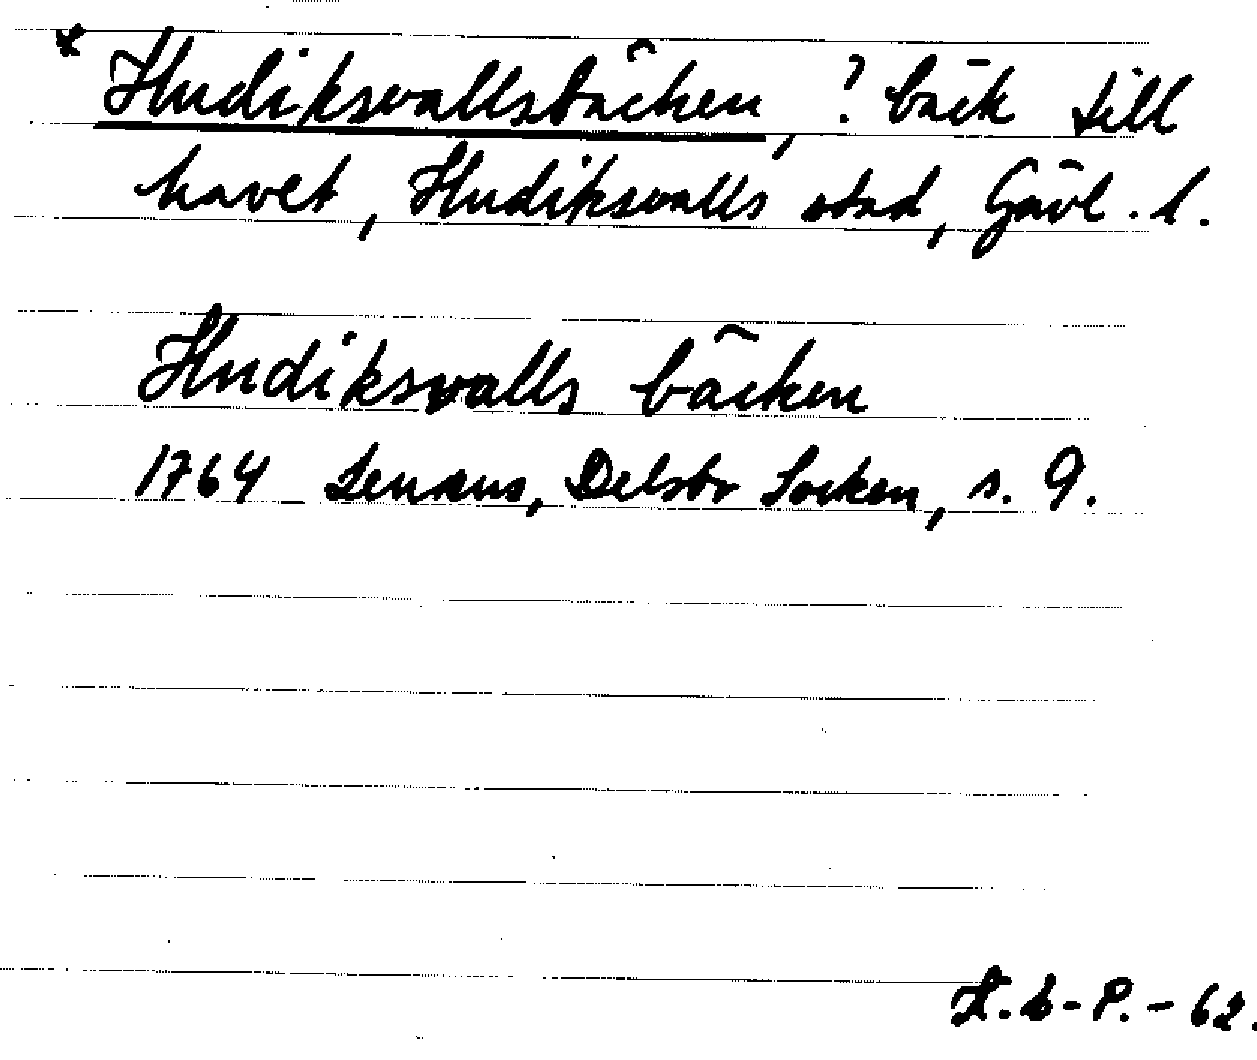 * Hudiksvallsbäcken, ? bäck till
havet, Hudiksvalls stad, Gävl. l.
Hudiksvalls bäcken
1764 Lenæus, Delsbo Socken, s. 9.
H.L-P.-62.